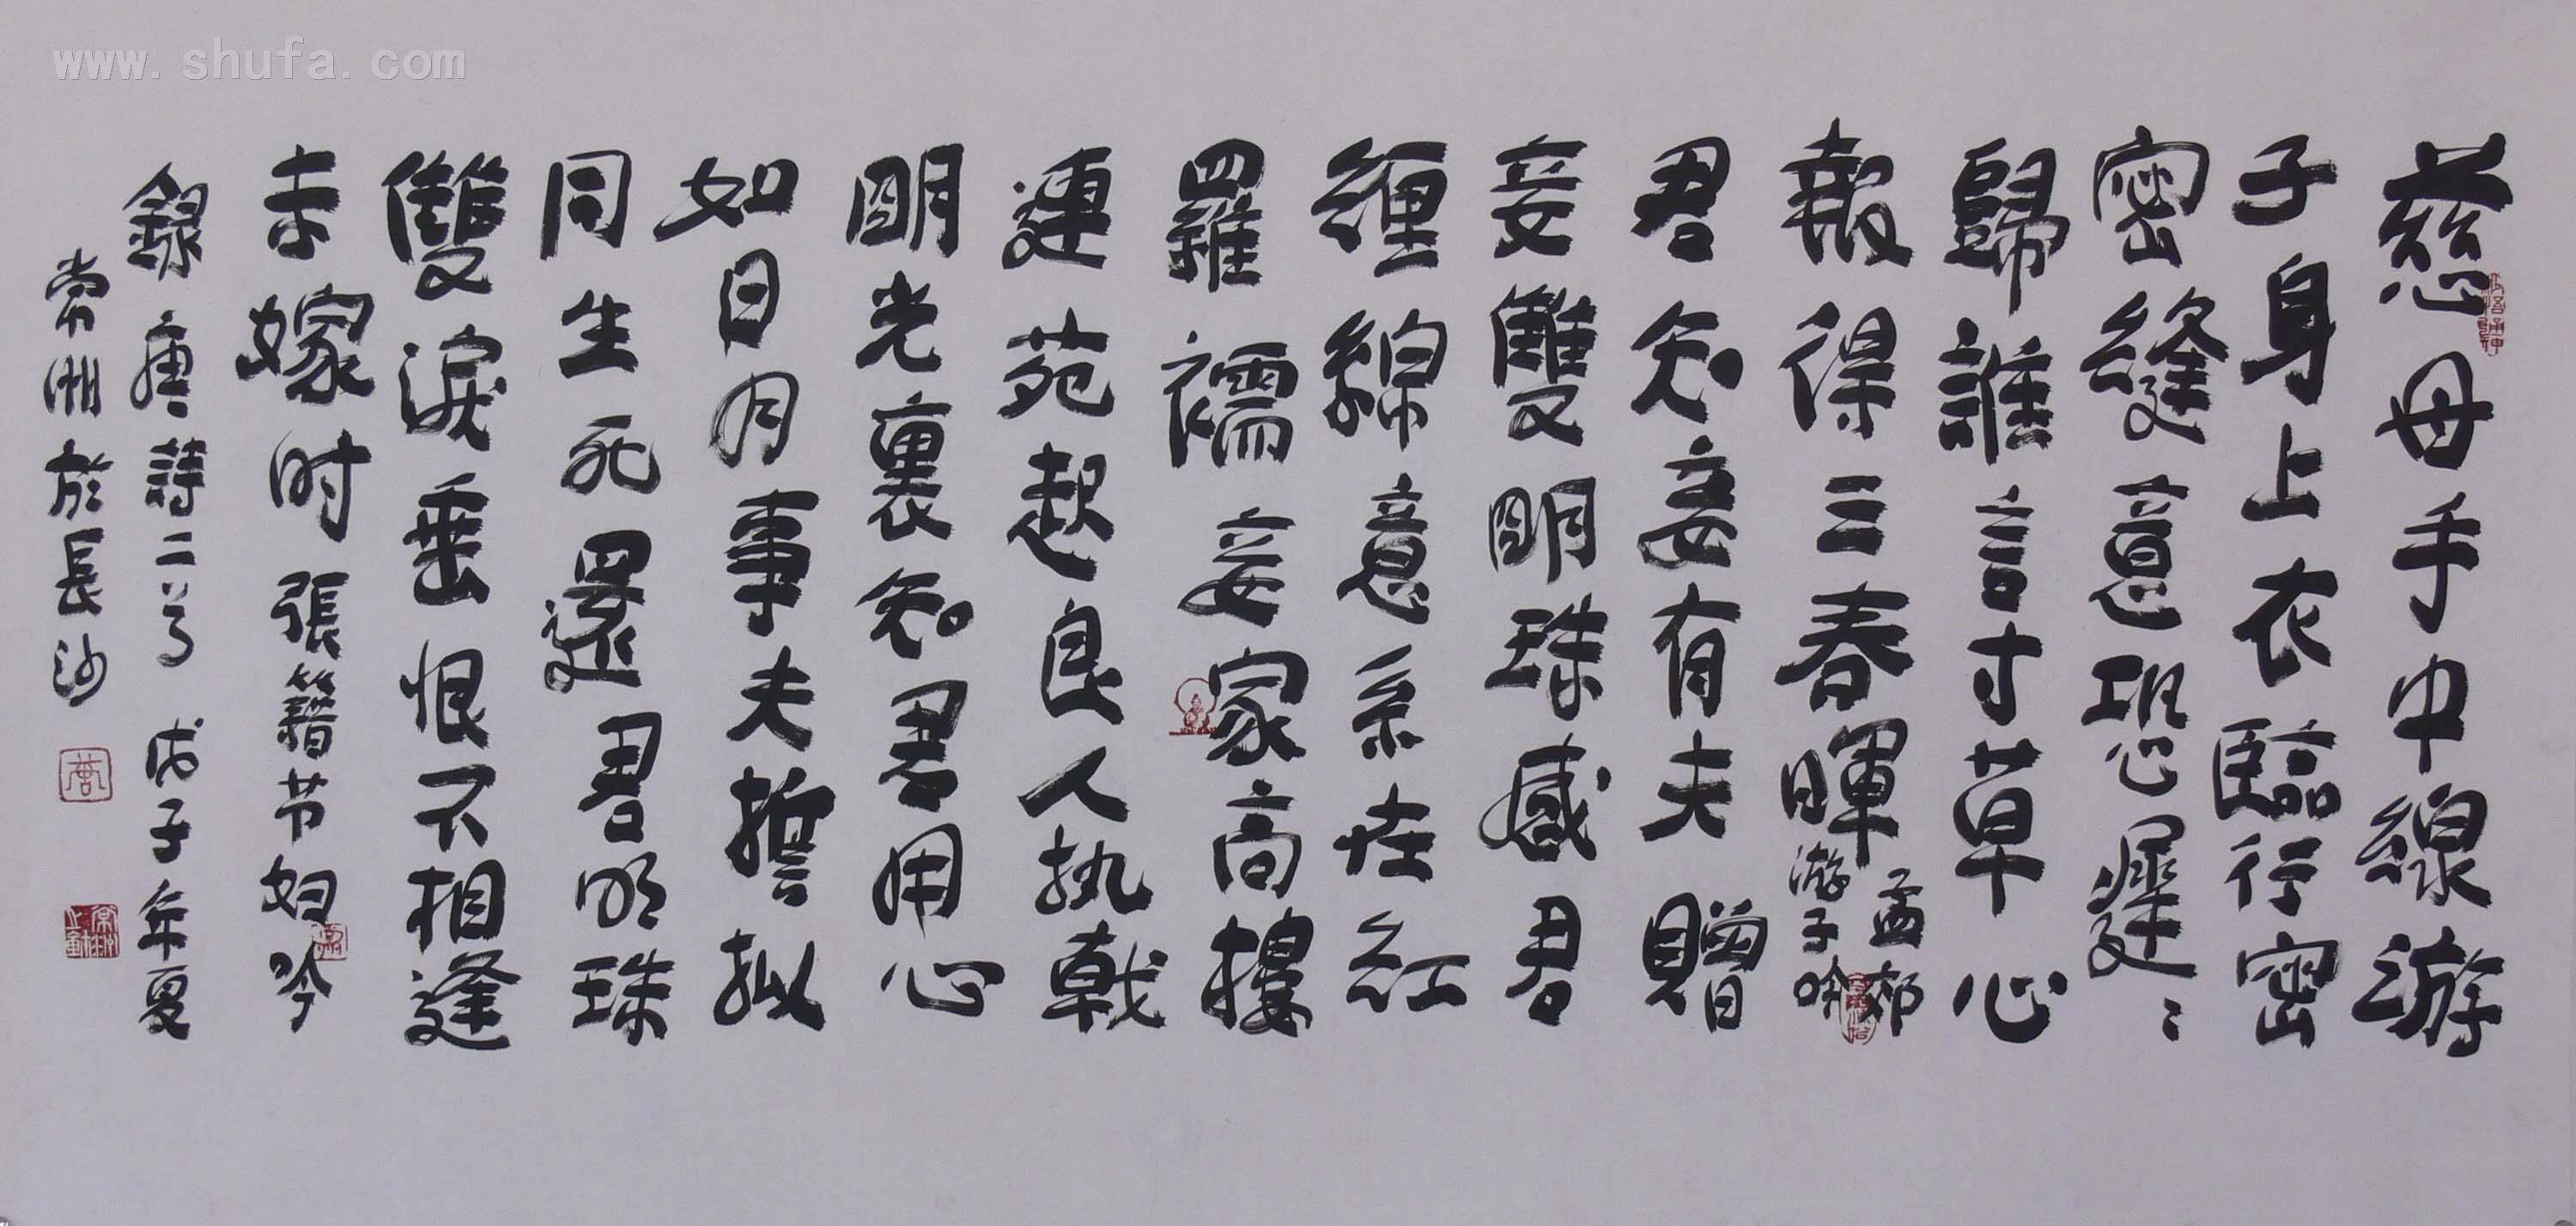 www.shufa.com
慈母手中線游
子身上衣臨行密
密縫意恐遲〻
歸誰言寸草心
報得三春暉
孟郊
游子吟
君知妾有夫贈
妾雙明珠感君
纏綿意系在红
羅襦妾家高樓
連苑起良人执戟
明光裏知君用心
如日月事夫誓拟
同生死還君明珠
雙淚垂恨不相逢
未嫁时 張籍节妇吟
録唐詩二首 戊子年夏
常洲於長沙